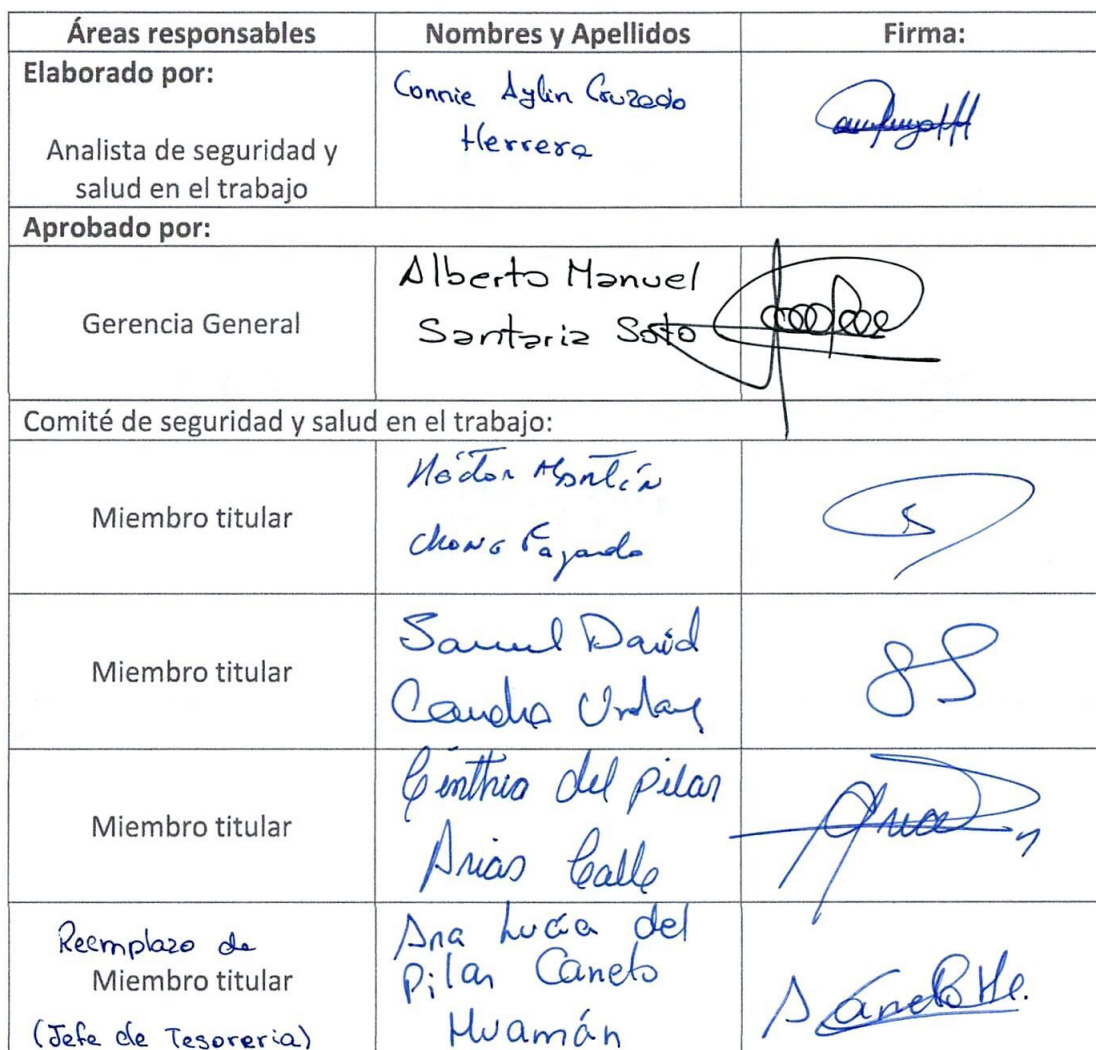 Áreas responsables Nombres y Apellidos Firma:
Elaborado por:
Analista de seguridad y
salud en el trabajo
Connie Aylin Cruzado
Herrera
Aprobado por:
Gerencia General
Alberto Manuel
Santaria Soto
Comité de seguridad y salud en el trabajo:
Miembro titular
Héctor Martín
Chong Fajardo
Miembro titular
Samuel David
Miembro titular
Cinthia del Pilar
Arias Calle
Reemplazo de
Miembro titular
(Jefe de Tesoreria)
Ana Lucía del
Pilar Caneto
Huamán